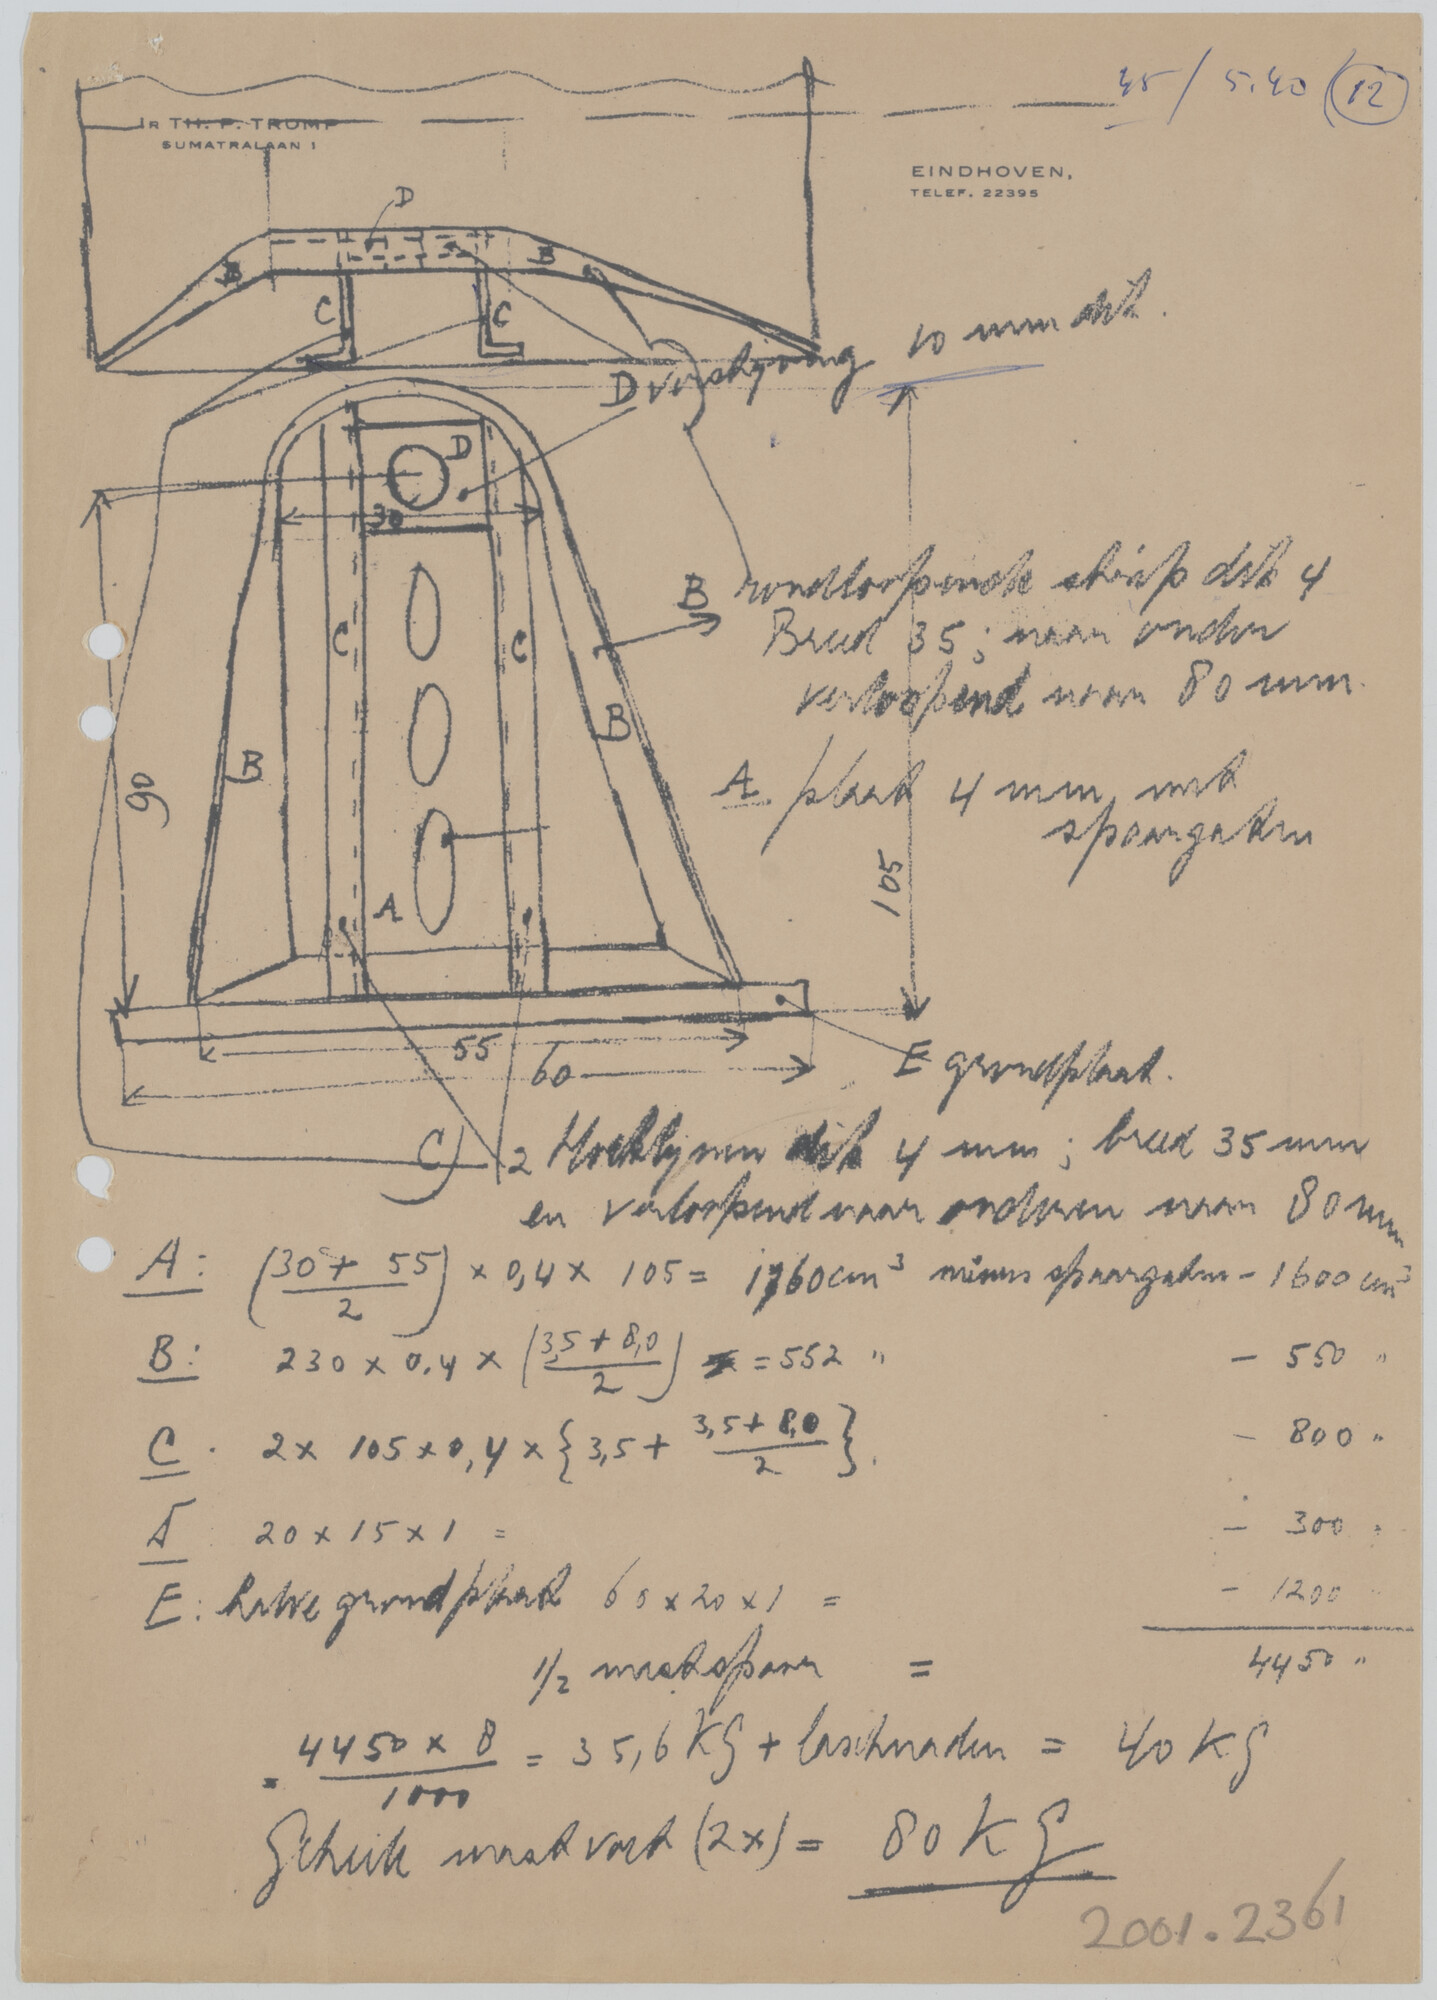 45 / 5.40 (12)
IR TH. P. TROMP
SUMATRALAAN 1
EINDHOVEN,
TELEF. 22395
D
B
B
C
C
10 mm dik.
D verstijving
D
30
B rondloopende strip dik 4
Breed 35; naar onder
verloopend naar 80 mm.
C
C
B
B
90
A plaat 4 mm met
spaargaten
105
A
55
60
E grondplaat.
C) 2 Hoeklijnen dik 4 mm; breed 35 mm
en verloopend naar onderen naar 80 mm
A: (30 + 55 / 2) × 0,4 × 105 = 1760 cm³ minus spaargaten - 1600 cm³
B: 230 × 0.4 × (3,5 + 8,0 / 2) = 552 " - 550 "
C. 2 × 105 × 0,4 × {3,5 + 3,5 + 8,0 / 2}. - 800 "
D 20 × 15 × 1 = - 300 "
E: halve grondplaat 60 × 20 × 1 = - 1200 "
1/2 mastspoor = 4450 "
= 4450 × 8 / 1000 = 35,6 KG + laschnaden = 40 KG
Geheele mastvoet (2×) = 80 KG
2001.2361